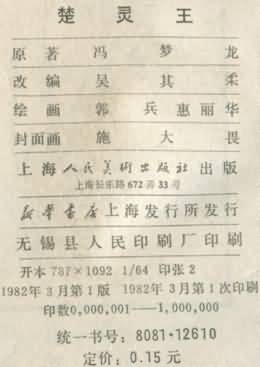 楚灵王
原著 冯梦龙
改编 吴其柔
绘画 郭兵 惠丽华
封面画 施大畏
上海人民美术出版社出版
上海长乐路672弄33号
新华书店上海发行所发行
无锡县人民印刷厂印刷
开本 787×1092 1/64 印张 2
1982年3月第1版 1982年3月第1次印刷
印数0,000,001——1,000,000
统一书号：8081·12610
定价：0.15元